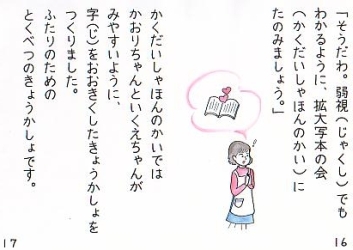 「そうだわ。弱視（じゃくし）でも
わかるように、拡大写本の会
（かくだいしゃほんのかい）に
たのみましょう。」
16
かくだいしゃほんのかいでは
かおりちゃんといくえちゃんが
みやすいように、
字（じ）をおおきくしたきょうかしょを
つくりました。
ふたりのための
とくべつのきょうかしょです。
17